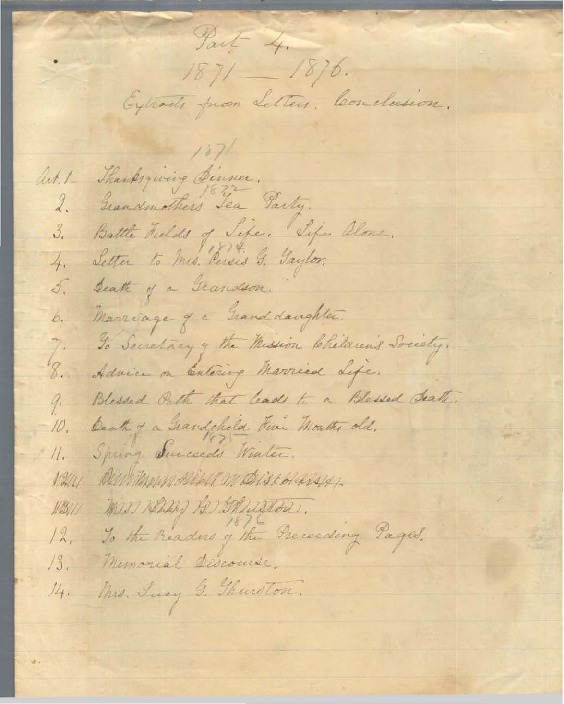 Part 4.
1871 — 1876.
Extracts from Letters. Conclusion.
1871
Art. 1 - Thanksgiving Dinner.
1872
2. Grandmother's Tea Party.
3. Battle Fields of Life. Life Alone.
1874.
4. Letter to Mrs. Persis G. Taylor.
5. Death of a Grandson.
6. Marriage of a Granddaughter.
7. To Secretary of the Mission Children's Society.
8. Advice on Entering Married Life.
9. Blessed Path that leads to a Blessed Death.
10. Death of a Grandchild Five Months old.
1875
11. Spring Succeeds Winter.
1876
12. To the Readers of the Preceeding Pages.
13. Memorial Discourse.
14. Mrs. Lucy G. Thurston.